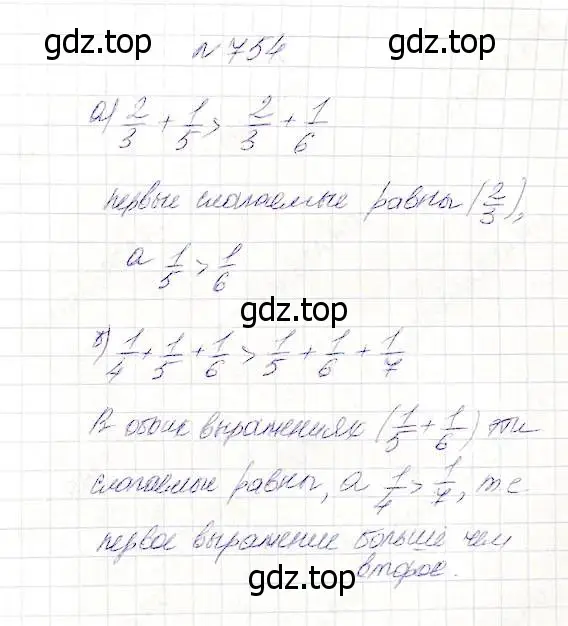 gdz.top gdz.top
N 754
а) 2/3 + 1/5 > 2/3 + 1/6
первые слагаемые равны (2/3),
а 1/5 > 1/6
gdz.top
б) 1/4 + 1/5 + 1/6 > 1/5 + 1/6 + 1/7
В обоих выражениях (1/5 + 1/6) эти
слагаемые равны, а 1/4 > 1/7, т.е.
первое выражение больше чем
второе.
gdz.top